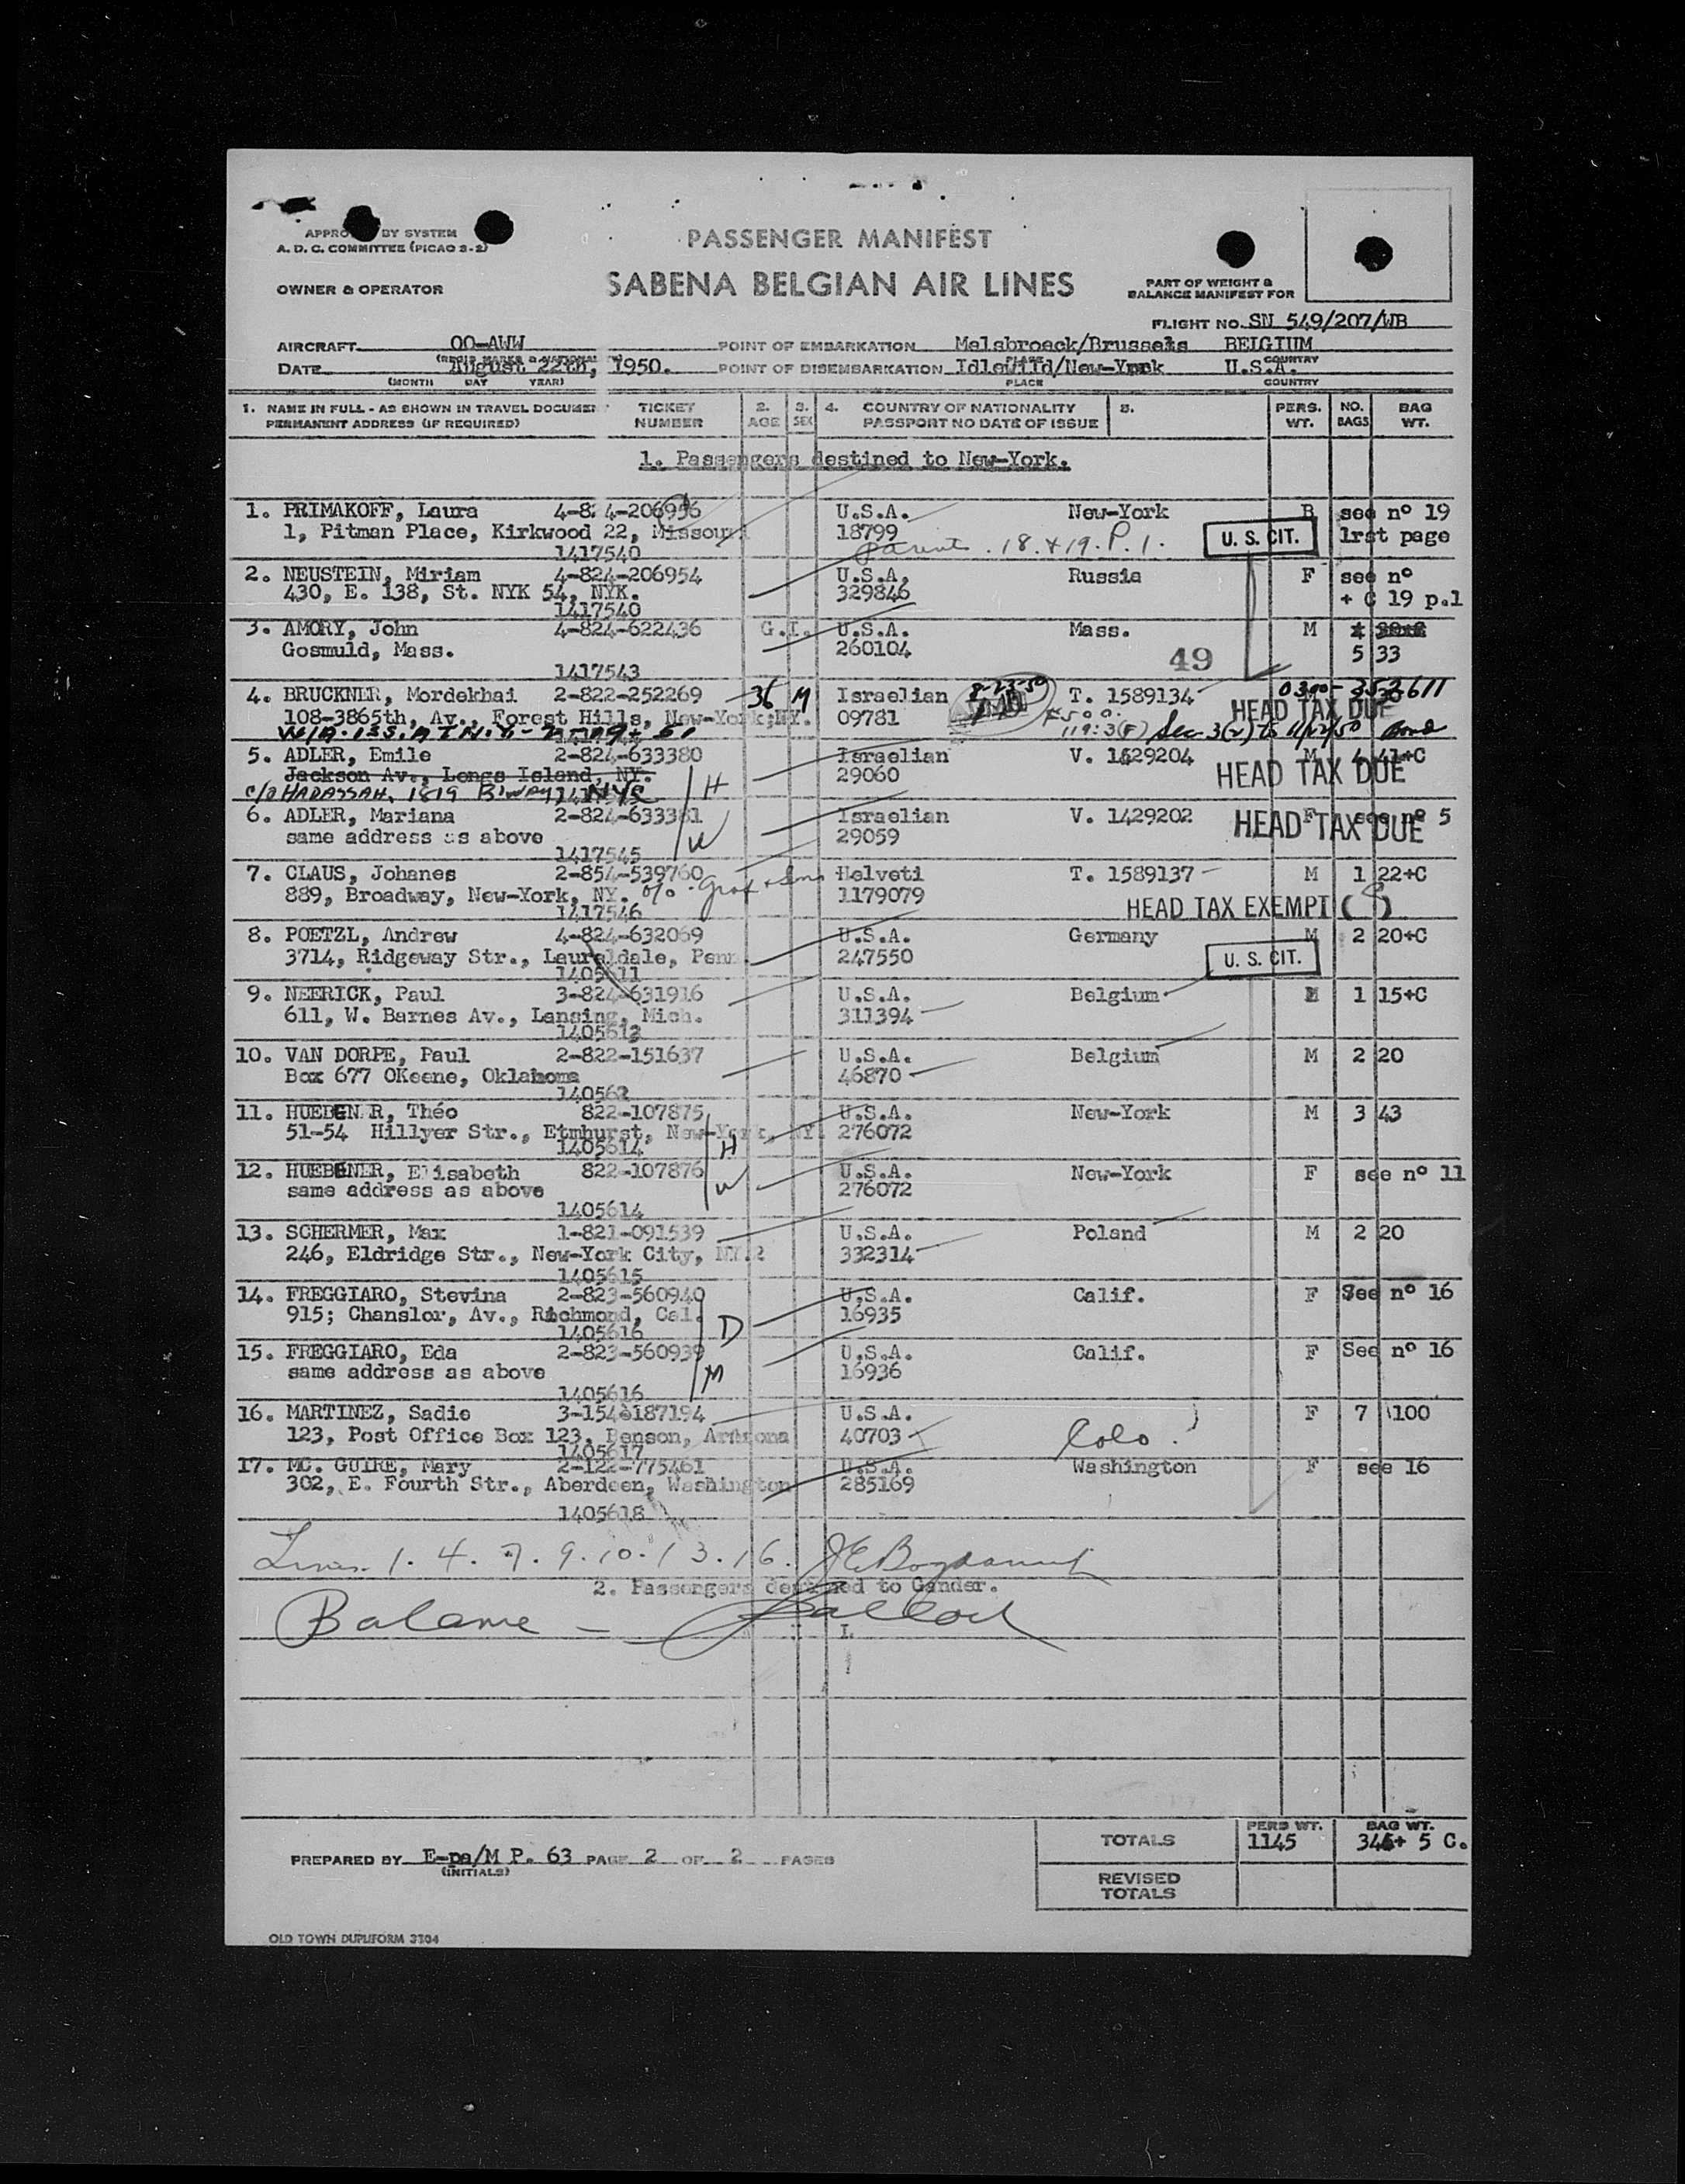 APPRO BY SYSTEM
A. D. C. COMMITTEE (PICAO 3-2)
PASSENGER MANIFEST
OWNER & OPERATOR
SABENA BELGIAN AIR LINES
PART OF WEIGHT &
BALANCE MANIFEST FOR
FLIGHT NO. SN 549/207/WB
AIRCRAFT OO-AWW POINT OF EMBARKATION Melsbroeck/Brussels BELGIUM
(REGIS MARKS & NATIONALITY) PLACE COUNTRY
DATE August 22th, 1950. POINT OF DISEMBARKATION Idlewild/New-York U.S.A.
(MONTH DAY YEAR) PLACE COUNTRY
1. NAME IN FULL - AS SHOWN IN TRAVEL DOCUMEN TICKET 2. 3. 4. COUNTRY OF NATIONALITY 5. PERS. NO. BAG
PERMANENT ADDRESS (IF REQUIRED) NUMBER AGE SEX PASSPORT NO DATE OF ISSUE WT. BAGS WT.
1. Passengers destined to New-York.
1. PRIMAKOFF, Laura 4-824-206956 U.S.A. New-York B see nº 19
1, Pitman Place, Kirkwood 22, Missouri 18799 U. S. CIT. 1rst page
1417540 parents . 18. & 19. P. 1.
2. NEUSTEIN, Miriam 4-824-206954 U.S.A. Russia F see nº
430, E. 138, St. NYK 54, NYK. 329846 + C 19 p.1
1417540
3. AMORY, John 4-824-622436 G.I. U.S.A. Mass. M
Gosmuld, Mass. 260104 49 5 33
1417543
4. BRUCKNER, Mordekhai 2-822-252269 36 M Israelian 8-23-50 T. 1589134 0300-352611
108-3865th, Av., Forest Hills, New-York;NY. 09781 HEAD TAX DUE
5. ADLER, Emile 2-824-633380 Israelian V. 1429204 M 4 41+C
Jackson Av., Longs Island, NY. 29060 HEAD TAX DUE
c/o HADASSAH, 1819 B'way, NYC H
6. ADLER, Mariana 2-824-633381 Israelian V. 1429202 F see nº 5
same address as above W 29059 HEAD TAX DUE
1417545
7. CLAUS, Johanes 2-854-539760 Helveti T. 1589137 M 1 22+C
889, Broadway, New-York, NY. 1179079
1417546 HEAD TAX EXEMPT
8. POETZL, Andrew 4-824-632069 U.S.A. Germany M 2 20+C
3714, Ridgeway Str., Laureldale, Penn. 247550 U. S. CIT.
1405611
9. NEERICK, Paul 3-824-631916 U.S.A. Belgium M 1 15+C
611, W. Barnes Av., Lansing, Mich. 311394
10. VAN DORPE, Paul 2-822-151637 U.S.A. Belgium M 2 20
Box 677 OKeene, Oklahoma 46870
11. HUEBENER, Théo 822-107875 U.S.A. New-York M 3 43
51-54 Hillyer Str., Etmhurst, New-York, NY. 276072
1405614 H
12. HUEBENER, Elisabeth 822-107876 U.S.A. New-York F see nº 11
same address as above W 276072
1405614
13. SCHERMER, Max 1-821-091539 U.S.A. Poland M 2 20
246, Eldridge Str., New-York City, NY.2 332314
1405615
14. FREGGIARO, Stevina 2-823-560940 U.S.A. Calif. F See nº 16
915; Chanslor, Av., Richmond, Cal. D 16935
1405616
15. FREGGIARO, Eda 2-823-560939 U.S.A. Calif. F See nº 16
same address as above M 16936
1405616
16. MARTINEZ, Sadie U.S.A. F 7 100
123, Post Office Box 123, Benson, Arizona 40703 Colo.
1405617
17. MC. GUIRE, Mary 2-122-775461 U.S.A. Washington F see 16
302, E. Fourth Str., Aberdeen, Washington 285169
1405618
Lines 1. 4. 7. 9. 10. 13. 16.
2. Passengers destined to Gander.
Balance -
TOTALS PERS WT. 1145 BAG WT. 346+ 5 C.
PREPARED BY E-pa/M P. 63 PAGE 2 OF 2 PAGES
(INITIALS)
REVISED
TOTALS
OLD TOWN DUPLIFORM 3304